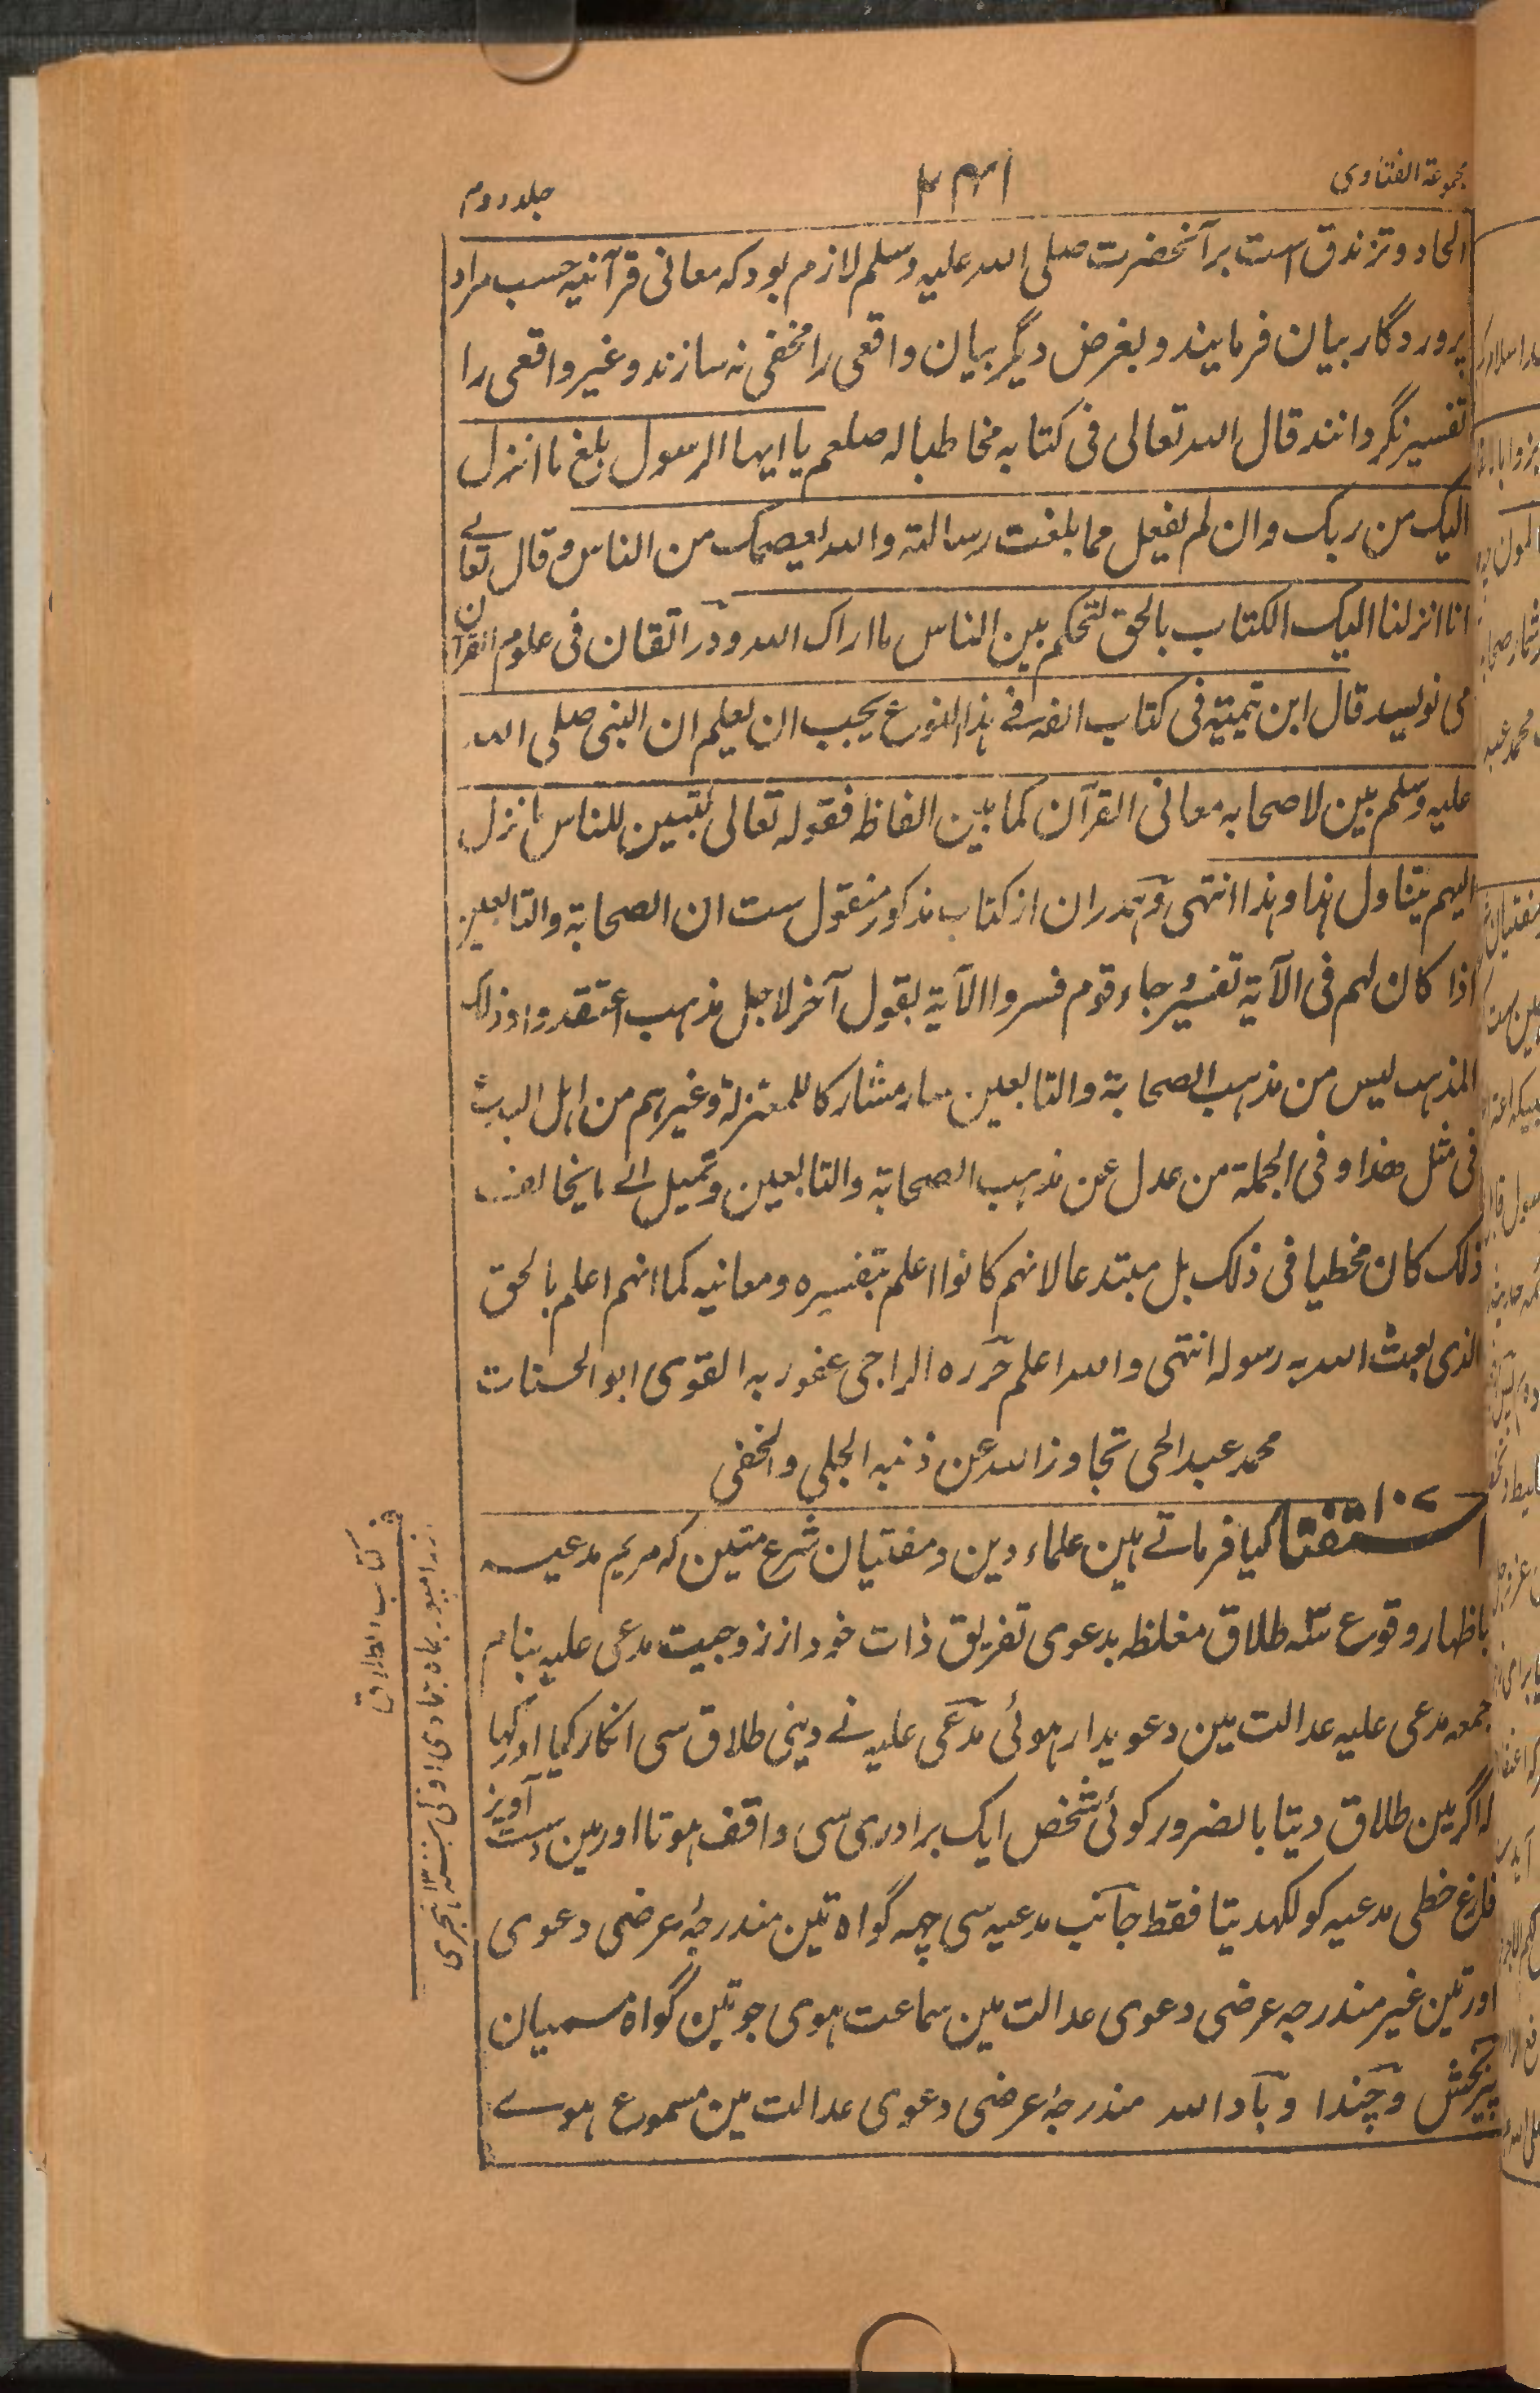 مجموعۃ الفتاوی
۲۴۱
جلد دوم
الحاد و تزندق است بر آنحضرت صلی اللہ علیہ وسلم لازم بود کہ معانی قرآنیہ حسب مراد
پروردگار بیان فرمایند و بغرض دیگر بیان واقعی را مخفی نہ سازند و غیر واقعی را
تفسیر نگردانند قال اللہ تعالی فی کتابہ مخاطبا لہ صلعم یا ایہا الرسول بلغ ما انزل
الیک من ربک وان لم تفعل فما بلغت رسالتہ واللہ یعصمک من الناس وقال تعالے
انا انزلنا الیک الکتاب بالحق لتحکم بین الناس ما اراک اللہ و در اتقان فی علوم القرآن
می نویسد قال ابن تیمیۃ فی کتاب الفہ فے ہذا النوع یجب ان یعلم ان النبی صلی اللہ
علیہ وسلم بین لاصحابہ معانی القرآن کما بین الفاظہ فقولہ تعالی لتبین للناس ما نزل
الیہم یتناول ہذا وہذا انتہی وہمدران از کتاب مذکور منقول ست ان الصحابۃ والتابعین
اذا کان لہم فی الآیۃ تفسیر وجاء قوم فسروا الآیۃ بقول آخر لاجل مذہب اعتقدوا وذلک
المذہب لیس من مذہب الصحابۃ والتابعین صار مشارکا للمعتزلۃ وغیرہم من اہل البدع
فی مثل ھذا وفی الجملۃ من عدل عن مذہب الصحابۃ والتابعین وتمیل الے ما یخالف
ذلک کان مخطیا فی ذلک بل مبتدعا لانہم کانوا اعلم بتفسیرہ ومعانیہ کما انہم اعلم بالحق
الذی بعث اللہ بہ رسولہ انتہی واللہ اعلم حررہ الراجی عفو ربہ القوی ابو الحسنات
محمد عبد الحی تجاوز اللہ عن ذنبہ الجلی والخفی
۱۰۷
استفتا کیا فرماتے ہین علماء دین ومفتیان شرع متین کہ مریم مدعیہ
باظہار وقوع سہ طلاق مغلظہ بدعوی تفریق ذات خود از زوجیت مدعی علیہ بنام
جمعہ مدعی علیہ عدالت مین دعویدار ہوئی مدعی علیہ نے دینی طلاق سی انکار کیا اور کہا
کہ اگر مین طلاق دیتا بالضرور کوئی شخص ایک برادری سی واقف ہوتا اور مین دست آویز
فارغ خطی مدعیہ کو لکھدیتا فقط جانب مدعیہ سی چھہ گواہ تین مندرجۂ عرضی دعوی
اور تین غیر مندرجہ عرضی دعوی عدالت مین سماعت ہوی جو تین گواہ مسمیان
پیربخش وچندا وبادالله مندرجۂ عرضی دعوی عدالت مین مسموع ہوے
کتاب الطلاق